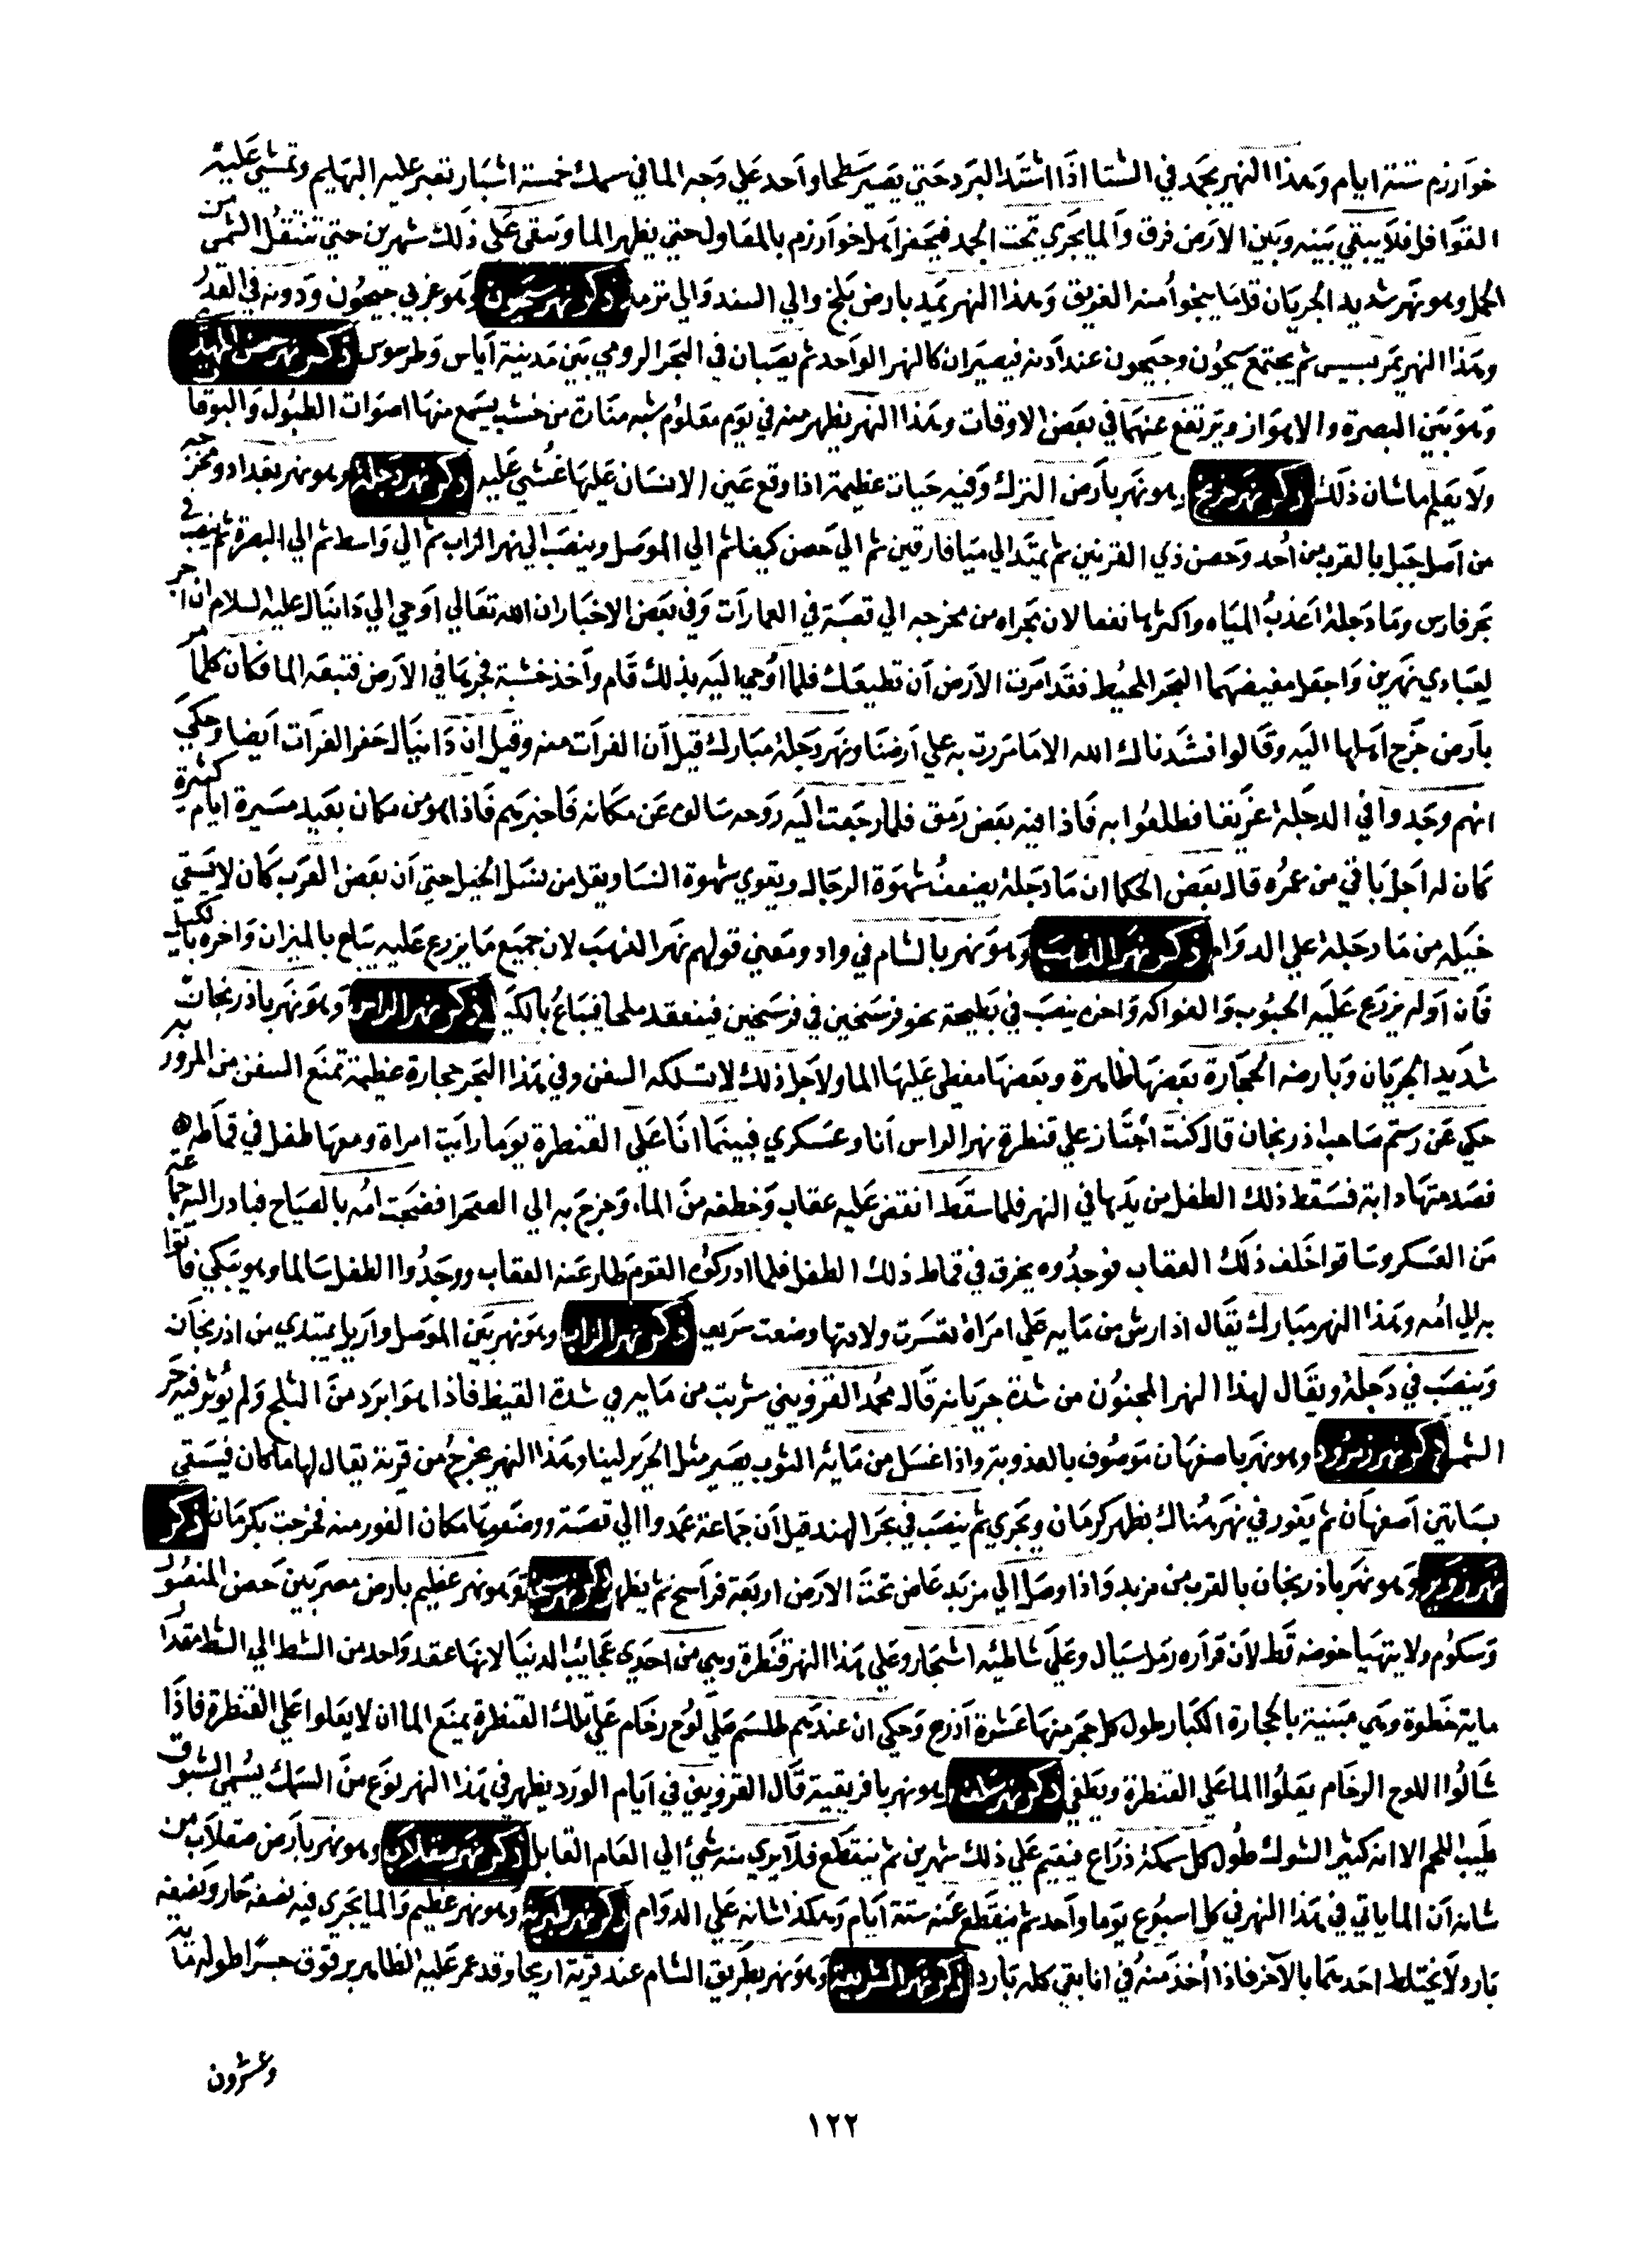 خوارزم ستة ايام وهذا النهر يجمد في الشتا اذا اشتد البرد حتي يصير سطحا واحد علي وجه الما في سمك خمسة اشبار تعبر عليه البهايم وتمشي عليه
القوافل فلا يبقي بينه وبين الارض فرق والما يجري تحت الجمد فيحفر اهل خوارزم بالمعاول حتي يظهر الما ويبقي علي ذلك شهرين حتي تنتقل الشمس من
الحمل وهو نهر شديد الجريان قل ما ينجوا منه الغريق وهذا النهر يمد بارض بلخ والي السند والي ترمد ذكر نهر سيحون وهو غربي جيحون ودونه في القدر
وهذا النهر يمر بسيس ثم يجتمع سيحون وجيحون عند ادنه فيصيران كالنهر الواحد ثم يصبان في البحر الرومي بين مدينة اياس وطرسوس ذكر نهر حصن المهدي
وهو بين البصرة والاهواز ويرتفع عنهما في بعض الاوقات وهذا النهر يظهر منه في يوم معلوم شبه منارة من خشب يسمع منها اصوات الطبول والبوقا
ولا يعلم ما شان ذلك ذكر نهر وهو نهر بارض الترك وفيه حيات عظيمة اذا وقع عين الانسان عليها غشي عليه ذكر نهر دجلة وهو نهر بغداد ومخرجه
من اصل جبل بالقرب من امد وحصن ذي القرنين ثم يمتد الي ميافارقين ثم الي حصن كيفا ثم الي الموصل وينصب الي نهر الزاب ثم الي واسط ثم الي البصرة ثم ينصب في
بحر فارس وما دجلة اعذب المياه واكثرها نفعا لان مجراه من مخرجه الي قصبة في العمارات وفي بعض الاخبار ان الله تعالي اوحي الي دانيال عليه السلام ان احفر
لعبادي نهرين واجعل مفيضهما البحر المحيط فقد امرت الارض ان تطيعك فلما اوحي اليه بذلك قام واخذ خشبة فجرها في الارض فتبعه الما فكان كلما مر
بارض خرج اهلها اليه وقالوا نشدناك الله الا ما مررت به علي ارضنا ونهر دجلة مبارك قيل ان الفرات منه وقيل ان دانيال حفر الفرات ايضا وحكي
انهم وجدوا في الدجلة غريقا فطلعوا به فاذا فيه بعض رمق فلما رجعت اليه روحه سالوه عن مكانه فاخبرهم فاذا هو من مكان بعيد مسيرة ايام كثيرة
كان له اجل باقي من عمره قال بعض الحكما ان ما دجلة يضعف شهوة الرجال ويقوي شهوة النسا ويقل من نسل الخيل حتي ان بعض العرب كان لا يسقي
خيله من ما دجلة علي الدوام ذكر نهر الذهب وهو نهر بالشام في واد ومعني قولهم نهر الذهب لان جميع ما يزرع عليه يباع بالميزان واخره بالكيل
فان اوله يزرع عليه الحبوب والفواكه واخره ينصب في بطيحة نحو فرسخين في فرسخين فينعقد ملحا فيباع بالكيل ذكر نهر الراس وهو نهر باذربجان
شديد الجريان وبارضه الحجارة بعضها ظاهرة وبعضها مغطي عليها الما ولاجل ذلك لا تسلكه السفن وفي هذا البحر حجارة عظيمة تمنع السفن من المرور به
حكي عن رستم صاحب اذربجان قال كنت اجتاز علي قنطرة نهر الراس انا وعسكري فبينما انا علي القنطرة يوما رايت امراة ومعها طفل في قماطه
فصدمتها دابة فسقط ذلك الطفل من يدها في النهر فلما سقط انقض عليه عقاب وخطفه من الماء وخرج به الي الصحرا فضجت امه بالصياح فبادر اليه جماعة
من العسكر وساقوا خلف ذلك العقاب فوجدوه يخرق في قماط ذلك الطفل فلما ادركوه القوم طار عنه العقاب ووجدوا الطفل سالما وهو يبكي فاتوا
به الي امه وهذا النهر مبارك يقال اذا رش من مايه علي امراة تعسرت ولادتها وضعت سريعا ذكر نهر الزاب وهو نهر بين الموصل واربل يبتدي من اذربجان
وينصب في دجلة ويقال لهذا النهر المجنون من شدة جريانه قال محمد القزويني شربت من مايه في شدة القيظ فاذا هو ابرد من الثلج ولم يوثر فيه حر
الشمس ذكر نهر زمرود وهو نهر باصفهان موصوف بالعذوبة واذا غسل من مايه الثوب يصير مثل الحرير لينا وهذا النهر مخرج من قرية يقال لها ماكان فيسقي
بساتين اصفهان ثم يغور في نهر هناك يظهر كرمان ويجري ثم ينصب في بحر الهند قيل ان جماعة عمدوا الي قصبة ووضعوها مكان الغور منه فخرجت بكرمان ذكر
نهر زوير وهو نهر باذربجان بالقرب من مزيد واذا وصل الي مزيد غاض تحت الارض اربعة فراسخ ثم يظهر ذكر نهر سبحا وهو نهر عظيم بارض مصر بين حصن المنصور
وسكوم ولا يتهيا خوضه قط لان قراره رمل سيال وعلي شاطيه اشجار وعلي هذا النهر قنطرة وهي من احدي عجائب الدنيا لانها عقد واحد من الشط الي الشط مقدار
ماية خطوة وهي مبنية بالحجارة الكبار طول كل حجر منها عشرة اذرع وحكي ان عندهم طلسم علي لوح رخام علي تلك القنطرة يمنع الما ان لا يعلوا علي القنطرة فاذا
شالوا اللوح الرخام يعلوا الما علي القنطرة ويطغي ذكر نهر وهو نهر بافريقية قال القزويني في ايام الورد يظهر في هذا النهر نوع من السمك يسمي الشبوق
طيب اللحم الا انه كثير الشوك طول كل سمكة ذراع فيقيم علي ذلك شهرين ثم ينقطع فلا يري منه شئ الي العام القابل ذكر نهر صقلاب وهو نهر بارض صقلاب من
شانه ان الما ياتي في هذا النهر في كل اسبوع يوما واحد ثم ينقطع عنه ستة ايام وهكذا شانه علي الدوام ذكر نهر وهو نهر عظيم والما يجري فيه نصفه حار ونصفه
بارد ولا يختلط احدهما بالاخر فاذا اخذ منه في انا بقي كله بارد ذكر نهر الشريعة وهو نهر بطريق الشام عند قرية اريحا وقد عمر عليه الظاهر برقوق جسرا طوله ماية
وعشرون
١٢٢